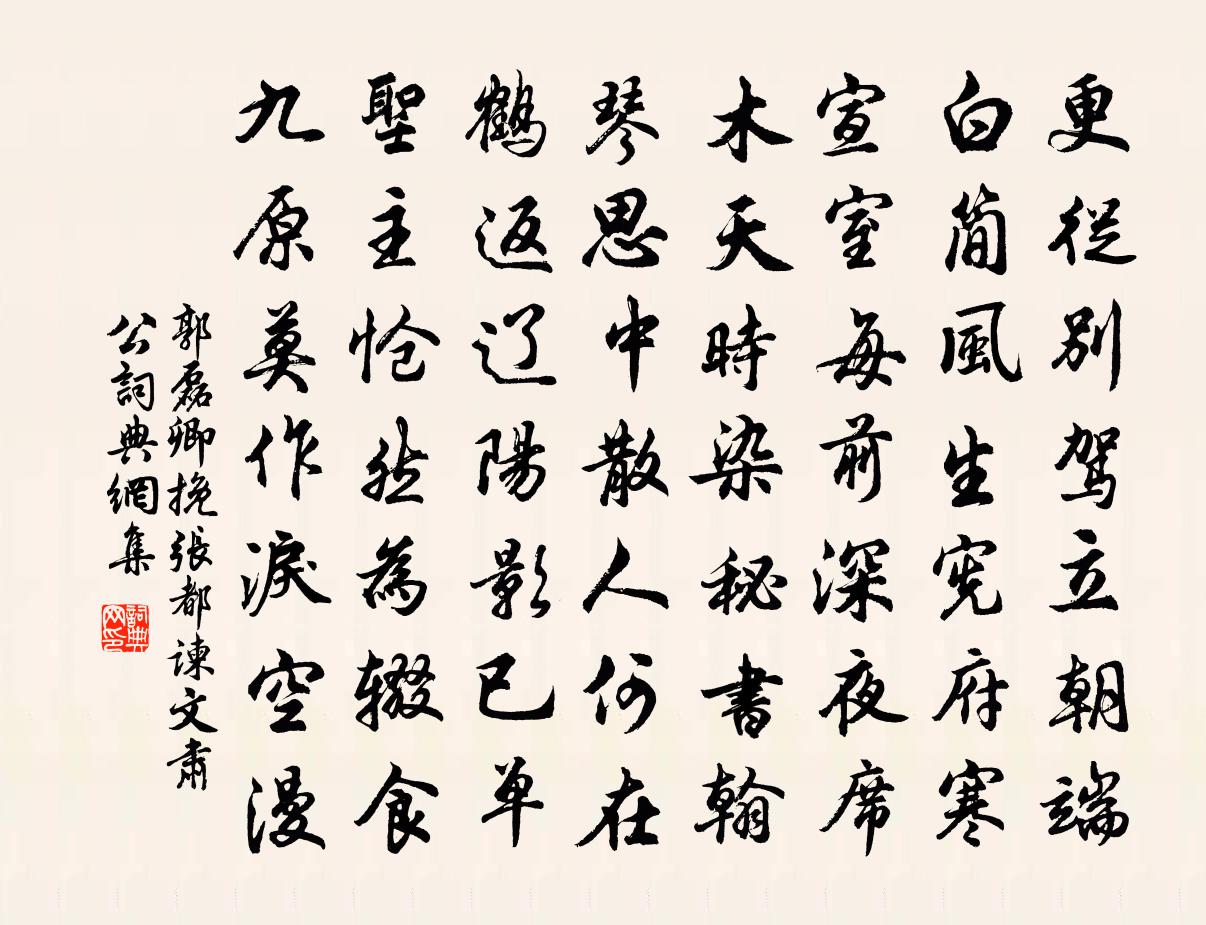 更從別駕立朝端
白簡風生宪府寒
宣室每前深夜席
木天時染秘書翰
琴思中散人何在
鶴返辽陽影已单
聖主怆然為辍食
九原莫作淚空漫
郭磊卿挽張都諫文肅
公詞典網集
詞典
网印